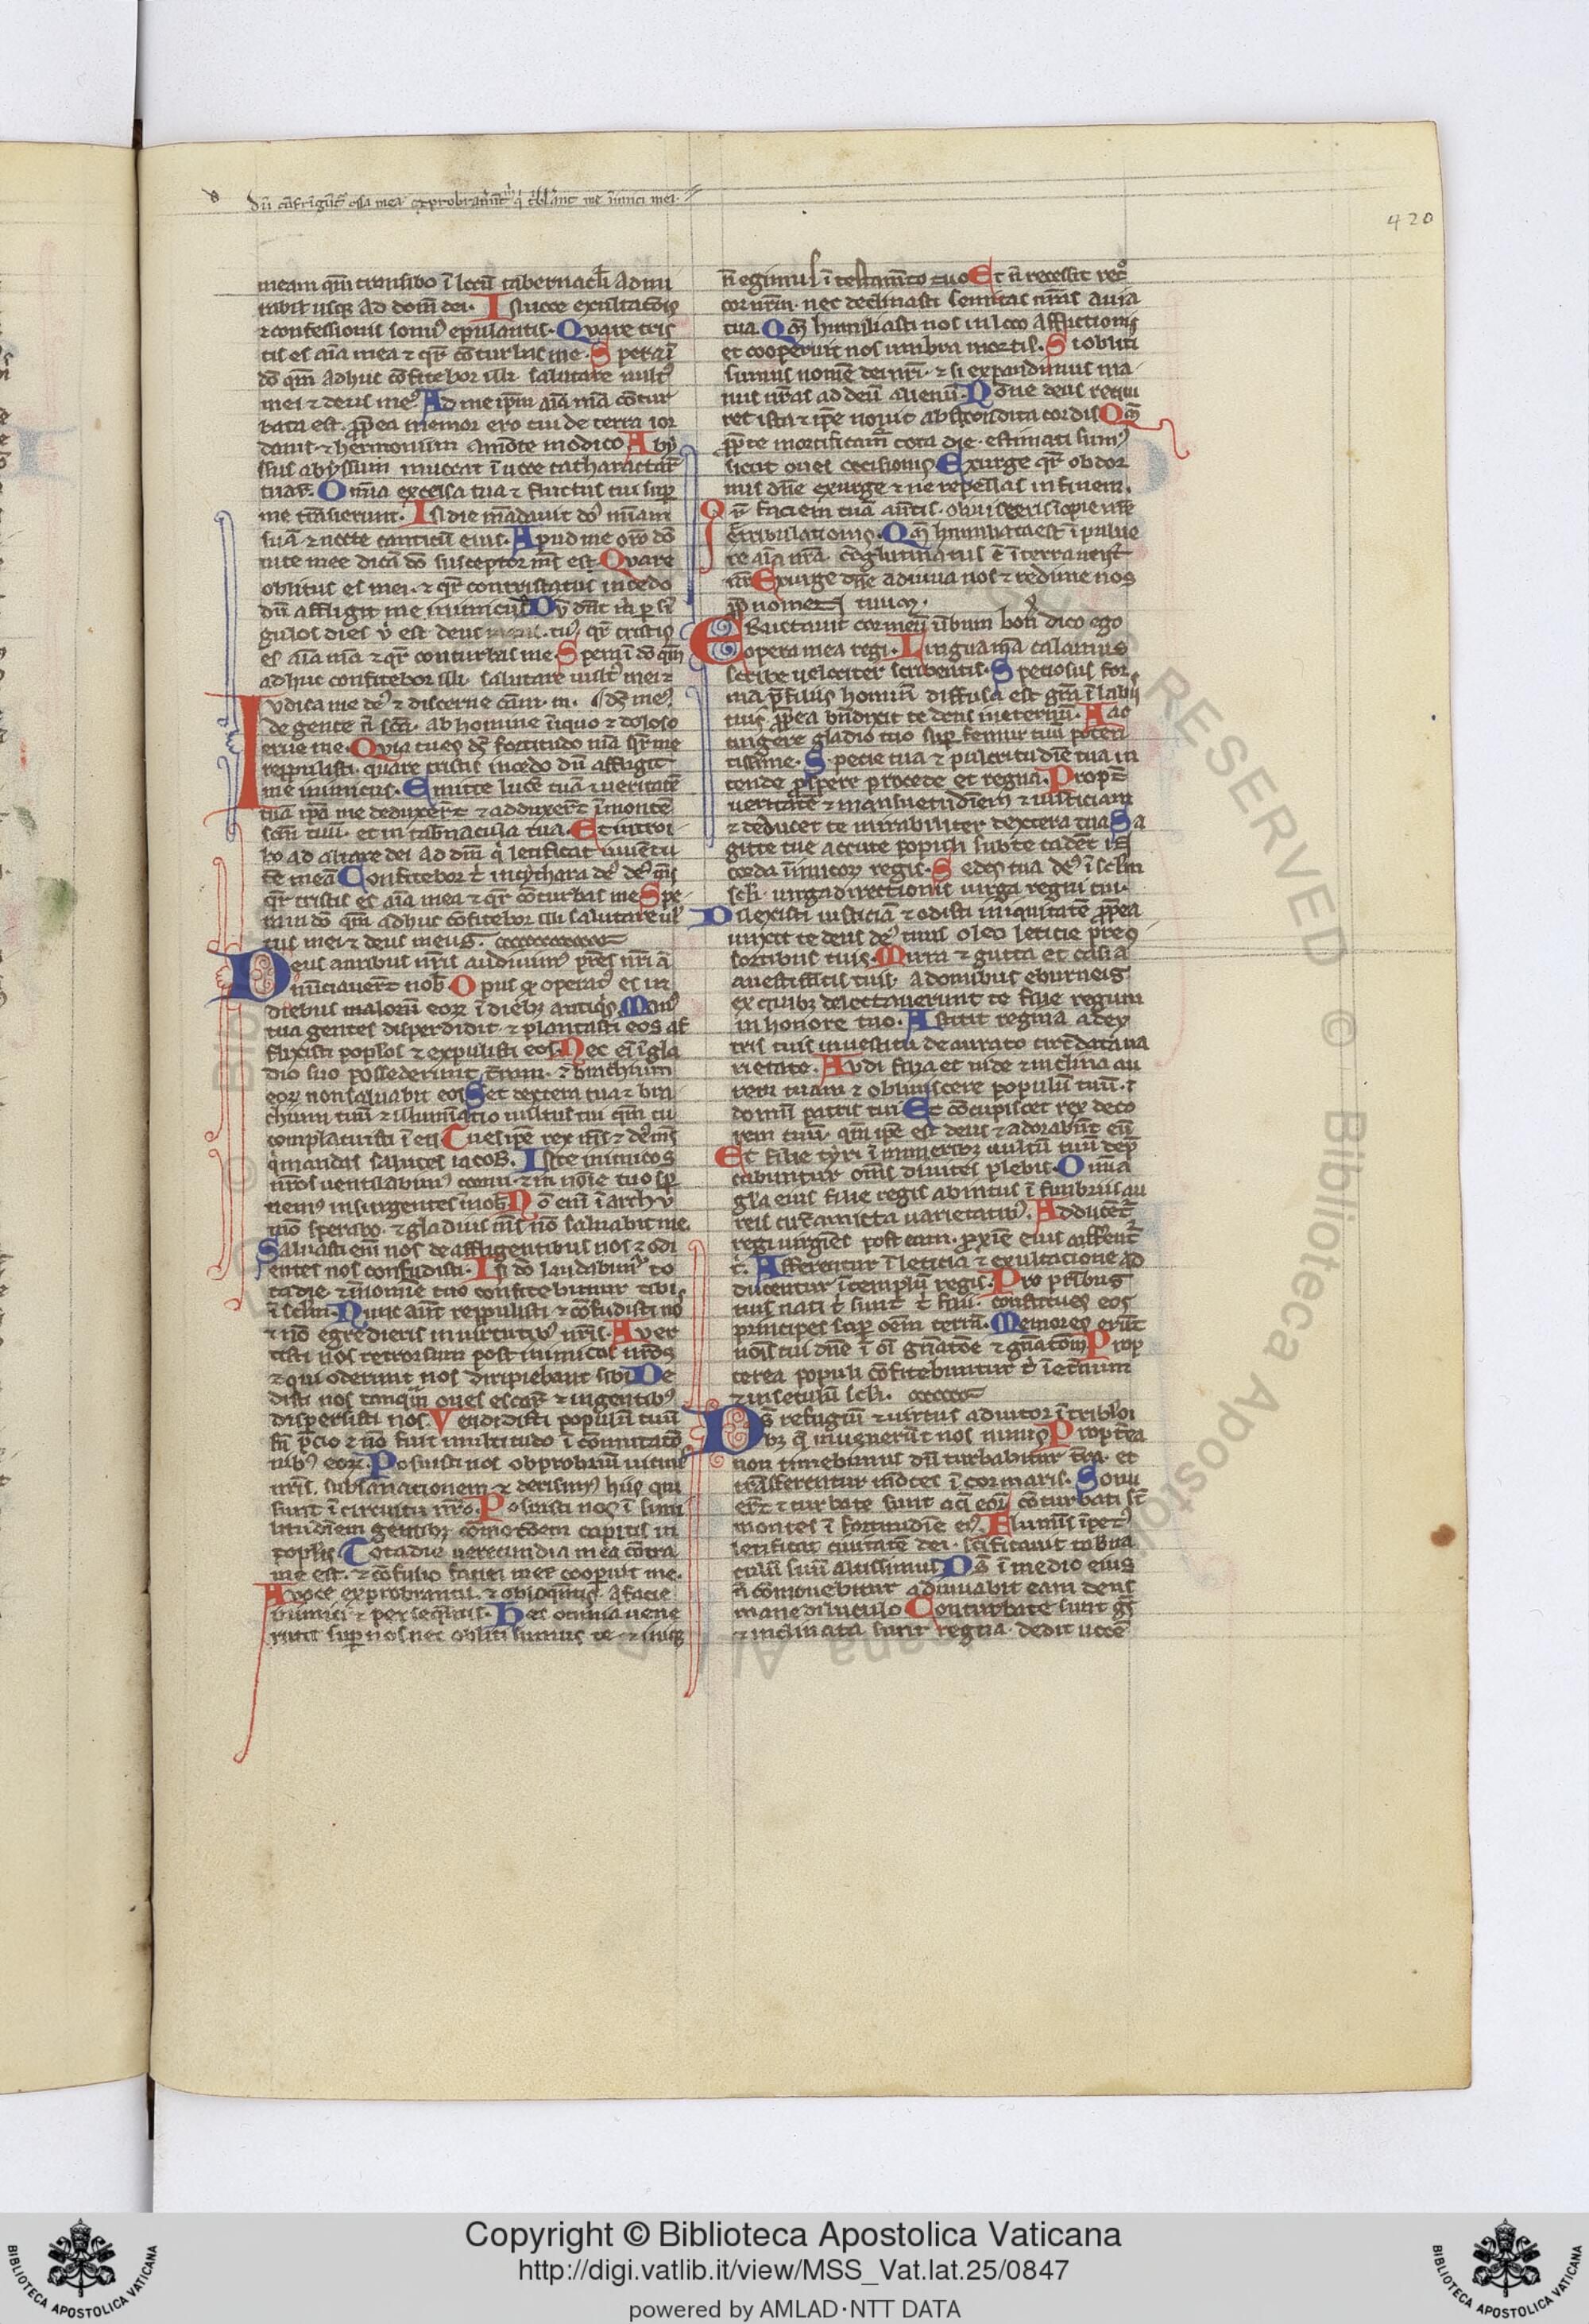 dū cōfrigūt᷑ ossa mea exprobrauer̄t m̄ q̇ t̄bl̄ant me inimici mei
420
meam qm̄ transibo ī locū tabernacl̄i admi
rabil' usqʒ ad domū dei. In uoce exultacōis
⁊ confessionis sonus epulantis. Quare tris
tis es aīa mea ⁊ qr̄ cōturbas me. Spera ī
dō qm̄ adhuc cōfitebor illi. salutare uultꝰ
mei ⁊ deus meꝰ Ad me ip̄m aīa m̄a cōtur
bata est. ꝓp̄ea memor ero tui de terra ior
danis ⁊ hermonium a mōte modico. Aby
ssus abyssum inuocat ī uoce catharactar̄
tuar̄. Om̄ia excelsa tua ⁊ fluctus tui suꝑ
me trāsierunt. In die mādauit dō mīam
suā ⁊ nocte canticū eius. Apud me or̄o dō
uite mee dicā dō susceptor m̄s est. Quare
oblitus es mei. ⁊ qr̄ contristatus incedo
dū affligit me inimicus Dū dn̄t m̄ ꝑ sī
gulos dies ubi est deus tuꝰ. qr̄ tristis
es aīa m̄a ⁊ qr̄ conturbas me. Spera ī dō qm̄
adhuc confitebor illi. salutare uultꝰ mei ⁊
Iudica me deꝰ ⁊ discerne cām. m. ds̄ meꝰ.
de gente n̄ sc̄a. ab homine īiquo ⁊ doloso
erue me. Quia tu es ds̄ fortitudo m̄a qr̄ me
reppulisti. quare tristis incedo dū affligit
me inimicus. Emitte lucē tuā ⁊ ueritatē
tuā ip̄a me deduxer̄t ⁊ adduxer̄t ī montē
sc̄m tuū. et in tab̄nacula tua. Et introi
bo ad altare dei ad dm̄ q̇ letificat iuuētu
tē meā Confitebor t̄ in cythara deꝰ deꝰ m̄s
qr̄ tristis es aīa mea ⁊ qr̄ cōturbas me Spe
ra in dō qm̄ adhuc cōfitebor illi salutare uł
tus mei ⁊ deus meus.
Deus auribus nr̄is audiuimꝰ pr̄es nr̄i ā
nūciauer̄t nob̄. Opus qd̄ operatꝰ es in
diebus malorū eorꝝ ī diebʒ antiq̇s Manꝰ
tua gentes disperdidit ⁊ plantasti eos af
flixisti popl̄os ⁊ expulisti eos. Nec eī ī gla
dio suo possederunt t̄ram. ⁊ brachium
eorꝝ non saluabit eos Set dextera tua ⁊ bra
chium tuū ⁊ illumīatio uultus tui qm̄ cō
complacuisti ī eis Tu es ip̄e rex m̄s ⁊ deꝰ m̄s
q̇ mandas salutes iacob. In te inimicos
nr̄os uentilabimꝰ cornu ⁊ in noīe tuo sꝑ
nemꝰ insurgentes ī nob̄ Nō enī ī archu
mō sperabo. ⁊ gladius m̄s nō saluabit me.
Saluasti enī nos de affligentibus nos ⁊ odi
entes nos confudisti. In dō laudabimꝰ to
ta die ⁊ ī nomīe tuo confitebimur tibi
ī sc̄lm Nunc aūt reppulisti ⁊ cōfudisti nō
⁊ nō egredieris in uirtutibꝰ nr̄is. Auer
tisti nos retrorsum post inimicos nr̄os
⁊ qui oderunt nos diripiebant sibi De
disti nos tanqͣm oues escar̄ ⁊ in gentibꝰ
dispersisti nos. Vendidisti populū tuū
sn̄ p̄cio ⁊ nō fuit multitudo ī cōmutacō
nibꝰ eorꝝ. Posuisti nos obprobriū uicinis
nr̄is. subsannationem ⁊ derisum hiis qui
sunt ī circuitu nr̄o. Posuisti nos ī simi
litudīem gentibʒ cōmotōem capitis in
popl̄is Tota die uerecundia mea cōtra
me est. ⁊ cōfusio faciei mee cooperuit me.
A uoce exprobrantis ⁊ obloq̄ntis. a facie
inimici ⁊ perseq̄ntis. Hec omnia uene
runt suꝑ nos nec obliti sumus te ⁊ inique
n̄ egimus ī testamēto tuo Et n̄ recessit retͦ
cor nr̄m. nec declinasti semitas nr̄as a uia
tua Qm̄ humiliasti nos in loco afflictionis
et cooperuit nos umbra mortis. Si obliti
sumus nomē dei nr̄i. ⁊ si expandimus ma
nus nr̄as ad deū alienū. Nōne deus requi
ret ista ⁊ ip̄e nouit abscondita cordis Qm̄
ꝓp̄ te mortificam̄ tota die. estimati sumꝰ
sicut oues occisionis Exurge qr̄ obdor
mis dn̄e exurge ⁊ ne repellas in finem.
Qr̄ faciem tuā auertis. obliuisceris īopie nr̄e
⁊ tribulationis. Qm̄ humiliata est ī pulue
re aīa nr̄a. cōglutinatus ē ī terra uent̄
nr̄ Exurge dn̄e adiuua nos ⁊ redime nos
ꝓp̄ nomen tuum.
Eructauit cor meū ūbum bonū dico ego
opera mea regi. Lingua m̄a calamus
scribe uelociter scribentis. Speciosus for
ma p̄ filiis hominū diffusa est gr̄a ī labiis
tuis ꝓp̄ea bn̄dixit te deus in eternū. Ac
cingere gladio tuo suꝑ femur tuū poten
tissime. Specie tua ⁊ pulcritudīe tua in
tende ꝓspere procede et regna. Propt̄
ueritatē ⁊ mansuetudīem ⁊ iusticiam
⁊ deducet te mirabiliter dextera tua Sa
gitte tue accute populi sub te cadēt in
corda īimicorꝝ regis. Sedes tua deꝰ ī sc̄lm
sc̄li. uirga directionis uirga regni tui.
Dilexisti iusticiā ⁊ odisti iniquitatē ꝓp̄ea
unxit te deus deꝰ tuus oleo leticie pre cō
sortibus tuis. Mirra ⁊ gutta et casia
a uestim̄tis tuis. a domibus eburneis
ex quibʒ delectauerunt te filie regum
in honore tuo. Astitit regina a dex
tris tuis in uestitu deaurato circūdata ua
rietate. Audi filia et uide ⁊ inclina au
rem tuam ⁊ obliuiscere populū tuū. ⁊
domū patris tui Et cōcupiscet rex deco
rem tuū. qm̄ ip̄e est deus ⁊ adorabūt eū
Et filie tyri ī muneribʒ uultū tuū dep̄
cabuntur om̄s diuites plebis. Om̄ia
gl̄a eius filie regis ab intus ī fimbriis au
reis circūamicta uarietatibꝰ. Adducēt᷑
regi uirgīes post eam. ꝓxīe eius afferent᷑
t̄. Afferentur ī leticia ⁊ exultacione ad
ducentur ī templū regis. Pro patribus
tuis nati t̄ sunt t̄ filii. constitues eos
principes suꝑ oēm terrā. Memores erūt
nōis tui dn̄e ī oī gn̄atōe ⁊ gn̄atōm Prop
terea populi cōfitebuntur t̄ ī eternum
⁊ in seculū sc̄li.
Ds̄ refugiū ⁊ uirtus adiutor ī tribl̄oi
bʒ q̄ inuenerūt nos nimis Propterea
non timebimus dū turbabitur t̄ra. et
trāsferentur mōtes ī cor maris. Sonu
er̄t ⁊ turbate sunt aq̄ eorꝝ cōturbati st̄
montes ī fortitudīe eiꝰ. Flumīs īpetꝰ
letificat ciuitatē dei. sc̄ificauit tab̄na
culū suū altissimus Ds̄ ī medio eius
n̄ cōmouebitur adiuuabit eam deus
mane diluculo Conturbate sunt gn̄s
⁊ inclinata sunt regna. dedit uocē
Copyright © Biblioteca Apostolica Vaticana
http://digi.vatlib.it/view/MSS_Vat.lat.25/0847
powered by AMLAD·NTT DATA